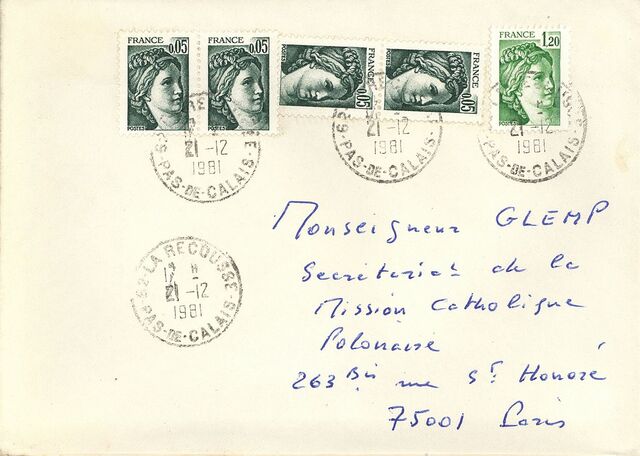 FRANCE 0.05
POSTES
FRANCE 0.05
POSTES
FRANCE 0.05
POSTES
FRANCE 0.05
POSTES
FRANCE 1,20
POSTES
21-12
1981
PAS-DE-CALAIS
62
21-12
1981
PAS-DE-CALAIS
21-12
1981
PAS-DE-CALAIS
62-LA RECOUSSE
21-12
1981
PAS-DE-CALAIS
Monseigneur GLEMP
Secrétariat de la
Mission Catholique
Polonaise
263 Bis rue St Honoré
75001 Paris